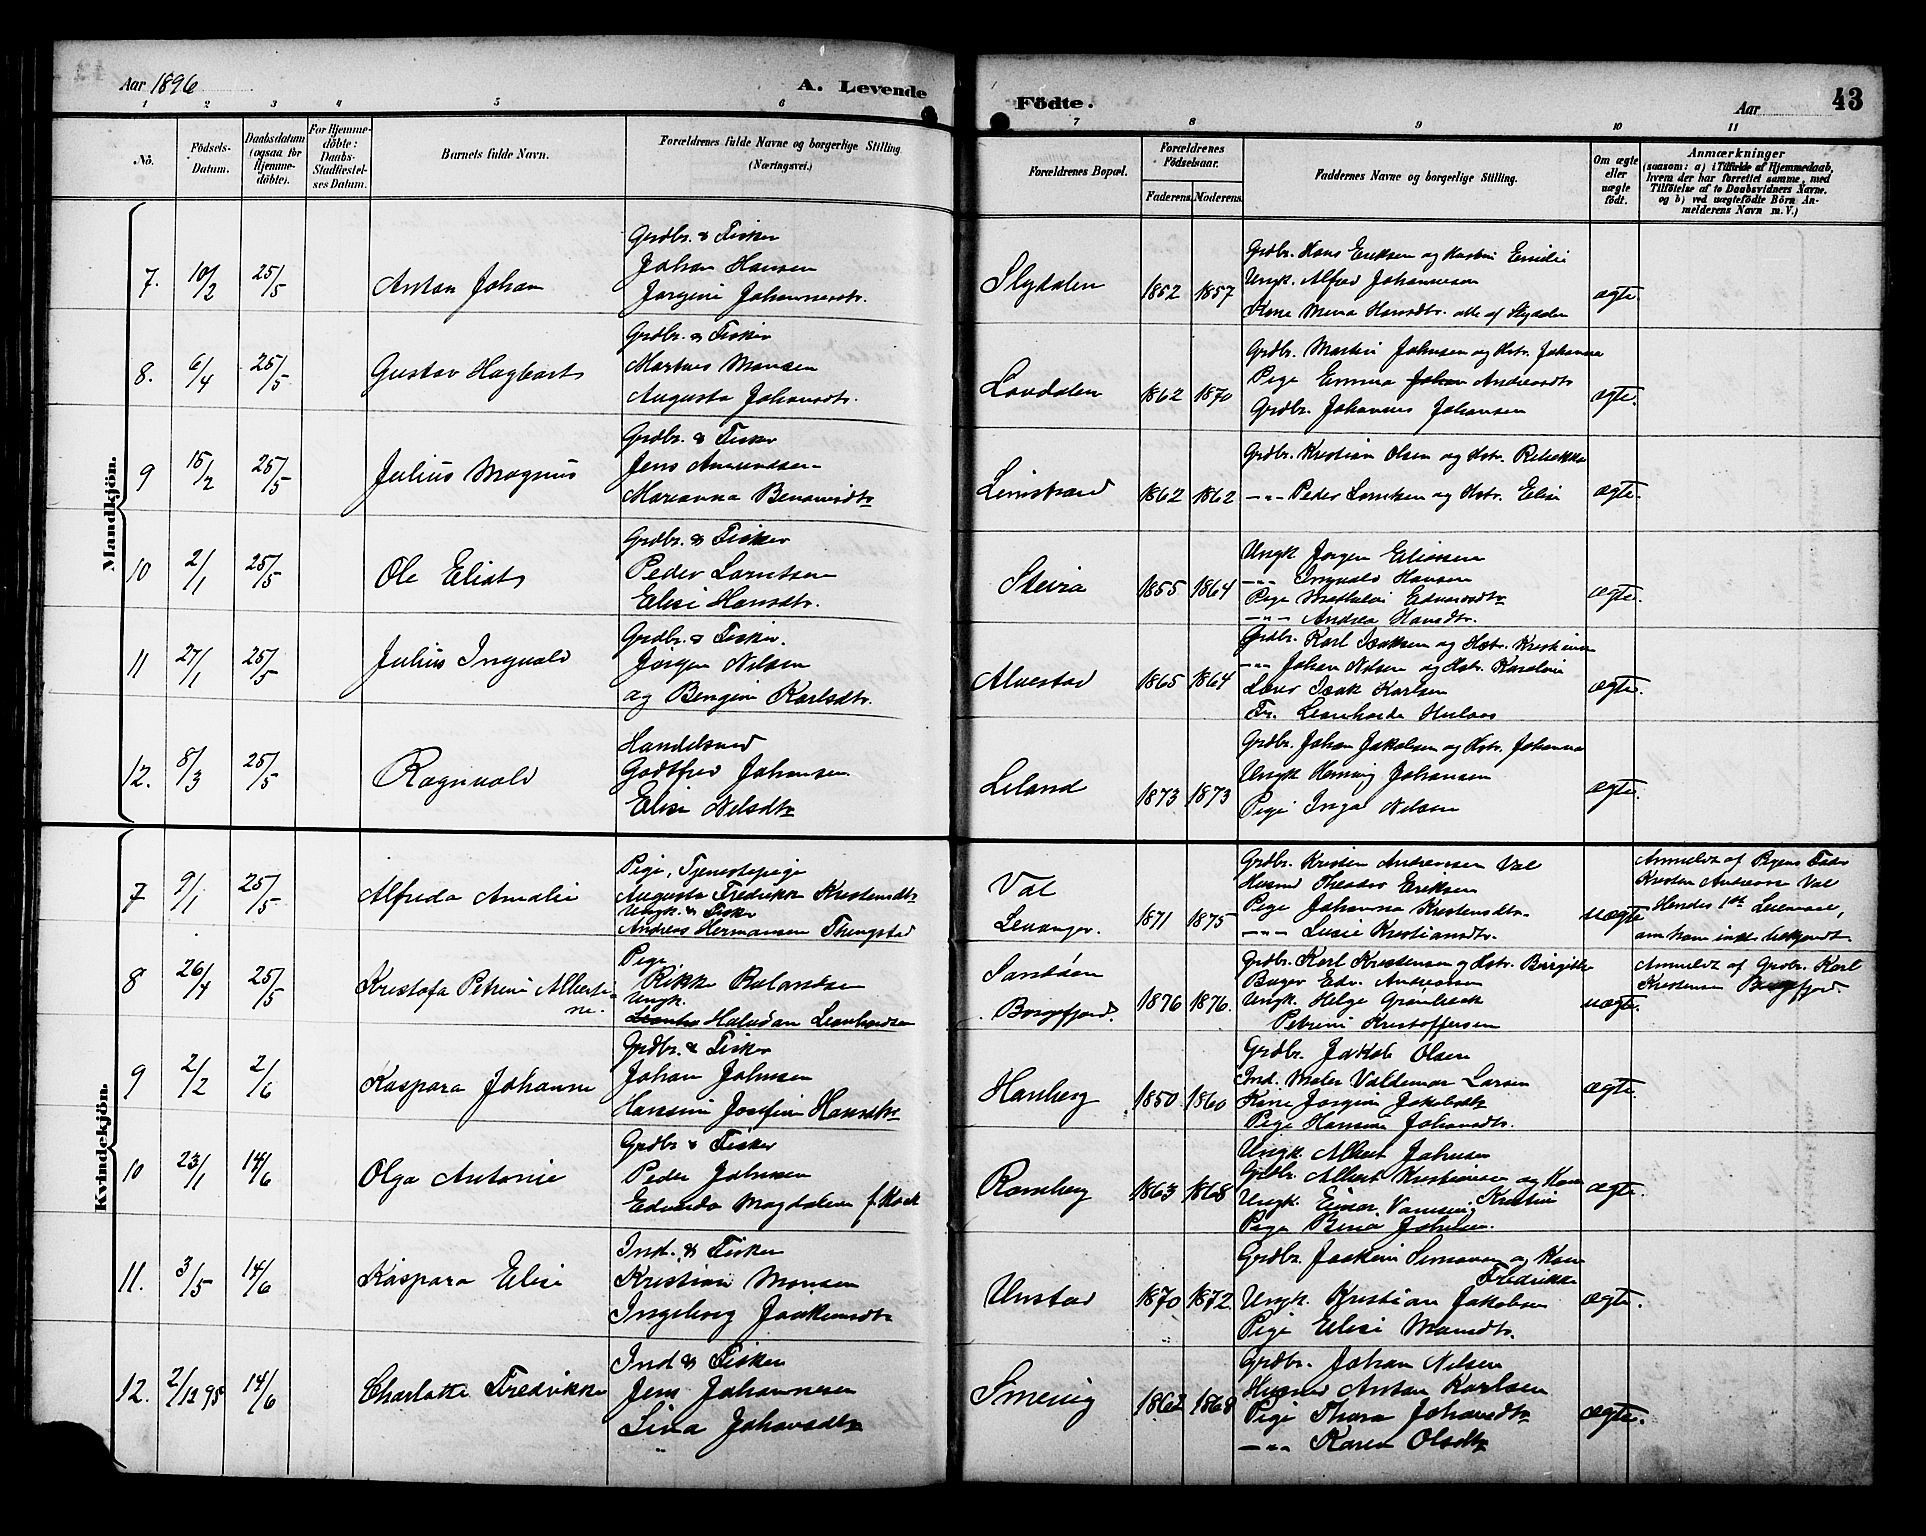 Aar 1896
A. Levende
Födte.
Aar
43
1 2 3 4 5 6 7 8 9 10 11
No.
Födsels-
Datum.
Daabsdatum
(ogsaa for
Hjemme-
döbte).
For Hjemme-
döbte:
Daabs-
Stadfæstel-
ses Datum.
Barnets fulde Navn.
Forældrenes fulde Navne og borgerlige Stilling
(Næringsvei.)
Forældrenes Bopæl.
Forældrenes
Födselsaar.
Faderens.
Moderens.
Faddernes Navne og borgerlige Stilling.
Om ægte
eller
uægte
födt.
Anmærkninger
(saasom: a) i Tilfælde af Hjemmedaab,
hvem der har forrettet samme, med
Tilföielse af to Daabsvidners Navne.
og b) ved uægtefödte Börn An-
melderens Navn m. V.)
Mandkjön.
7. 10/2 25/5 Anton Johan
Grdbr. & Fisker
Johan Hansen
Jorgine Johannesdtr.
Slydalen 1852 1857
Grdbr. Hans Eriksen og Hustru Emilie
Ungk. Alfred Johannesen
Kone Mena Hansdtr. alle af Slydalen
ægte.
8. 6/4 25/5 Gustav Hagbart
Grdbr. & Fisker
Martnes Monsen
Augusta Johansdtr.
Lavdalen 1862 1870
Grdbr. Martin Johnsen og Hstr. Johanna
Pige Emma Andreasdtr
Grdbr. Johannes Johansen
ægte.
9 15/2 25/5 Julius Magnus
Grdbr. & Fisker
Jens Amundsen
Marianna Benonisdtr
Limstrand 1862 1862
Grdbr. Kristian Olsen og Hstr. Rebekka
-"- Peder Lorntsen og Hstr. Elise
ægte.
10 2/1 25/5 Ole Eliot
Grdbr. & Fisker
Peder Lorntsen
Elise Hansdtr.
Steira 1855 1864
Ungk Jorgen Eliassen
-"- Ingvald Hansen
Pige Mathilde Edvardsdtr
-"- Andrea Hansdtr.
ægte.
11 27/1 25/5 Julius Ingvald
Grdbr. & Fisker.
Jörgen Nilsen
og Bengine Karlsdtr.
Alvestad 1865 1864
Grdbr. Karl Isaksen og Hstr. Kristine
-"- Johan Nilsen og Hstr. Karoline
Lærer Isak Karlsen
Fr. Leonharda
ægte.
12. 8/3 25/5 Ragnvald
Handelsmd
Godtfred Johansen
Elise Nilsdtr
Leland 1873 1873
Grdbr. Johan Jakobsen og Hstr. Johanna
Ungk Henning Johansen
Pige Inga Nilsen
ægte.
Kvindekjön.
7 9/1 25/5 Alfreda Amalie
Pige, Tjenestepige
Augusta Fredrikke Kristensdtr.
Ungk. & Fisker
Andreas Hermansen Thengstad
Val
Levanger. 1871 1875
Grdbr. Kristen Andreassen Val
Husmd Theodor Eriksen
Pige Johanna Kristensdtr.
-"- Lusie Kristiansdtr.
uægte
Anmeldt af Pigens Fader
Kristen Andreasse Val
Hendes 1ste Leiermaal,
om ham intet bekjendt.
8 26/4 25/5 Kristofa Petrine Alberti-
ne.
Pige
Rikke Rolandsen
Ungk.
Halvdan Leonhardsen
Sandöen
Borgefjord. 1876 1876.
Grdbr. Karl Kristensen og Hstr. Birgitte
Bager Edv. Andreasen
Ungk Helge Grönbeck
Petrine Kristoffersen
uægte.
Anmeldt af Grdbr. Karl
Kristensen Borgefjord.
9 2/2 2/6 Kaspara Johanne
Grdbr. & Fisker
Johan Johnsen
Hansine Josefine Hansdtr
Hanberg 1850 1860
Grdbr. Jakob Olsen
Ind. Maler Valdemar Larsen
Kone Jorgine Jakobsdtr
Pige Hansine Johansdtr.
ægte.
10 23/1 14/6 Olga Antonie
Grdbr & Fisker
Peder Johnsen
Edvarda Magdalena f. Kock
Ramberg 1863 1868
Ungk. Albert Johnsen
Grdbr. Albert Kristiansen og Kone
Kristine
Ungk. Einar
Pige Bina Johnsen.
ægte.
11. 3/5 14/6 Kaspara Elise
Ind. & Fisker
Kristian Monsen
Ingeborg Joakimsdtr
Unstad 1870 1872
Grdbr. Joakim Simonsen og Kone
Fredrikke
Ungk. Kristian Jakobsen
Pige Elise Monsdtr.
ægte.
12. 2/12 95 14/6 Charlotte Fredrikke
Ind & Fisker
Jens Johannesen
Lina Johansdtr
Smevig 1862 1868
Grdbr. Johan Nilsen
Husmd Anton Karlsen
Pige Thora Johansdtr
-"- Karen Olsdtr
ægte.